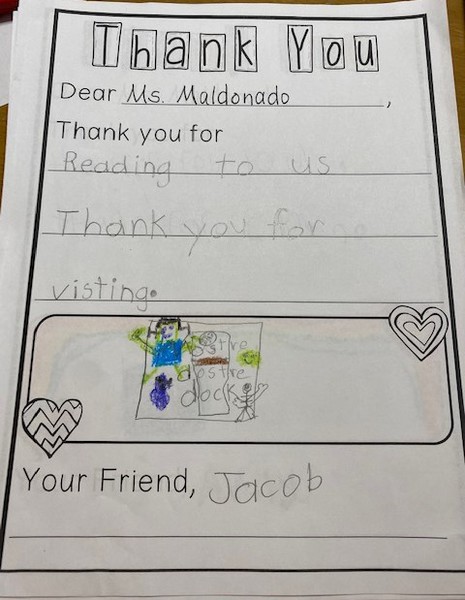 Thank You
Dear Ms. Maldonado,
Thank you for
Reading to us
Thank you for
visting.
dock
Your Friend, Jacob